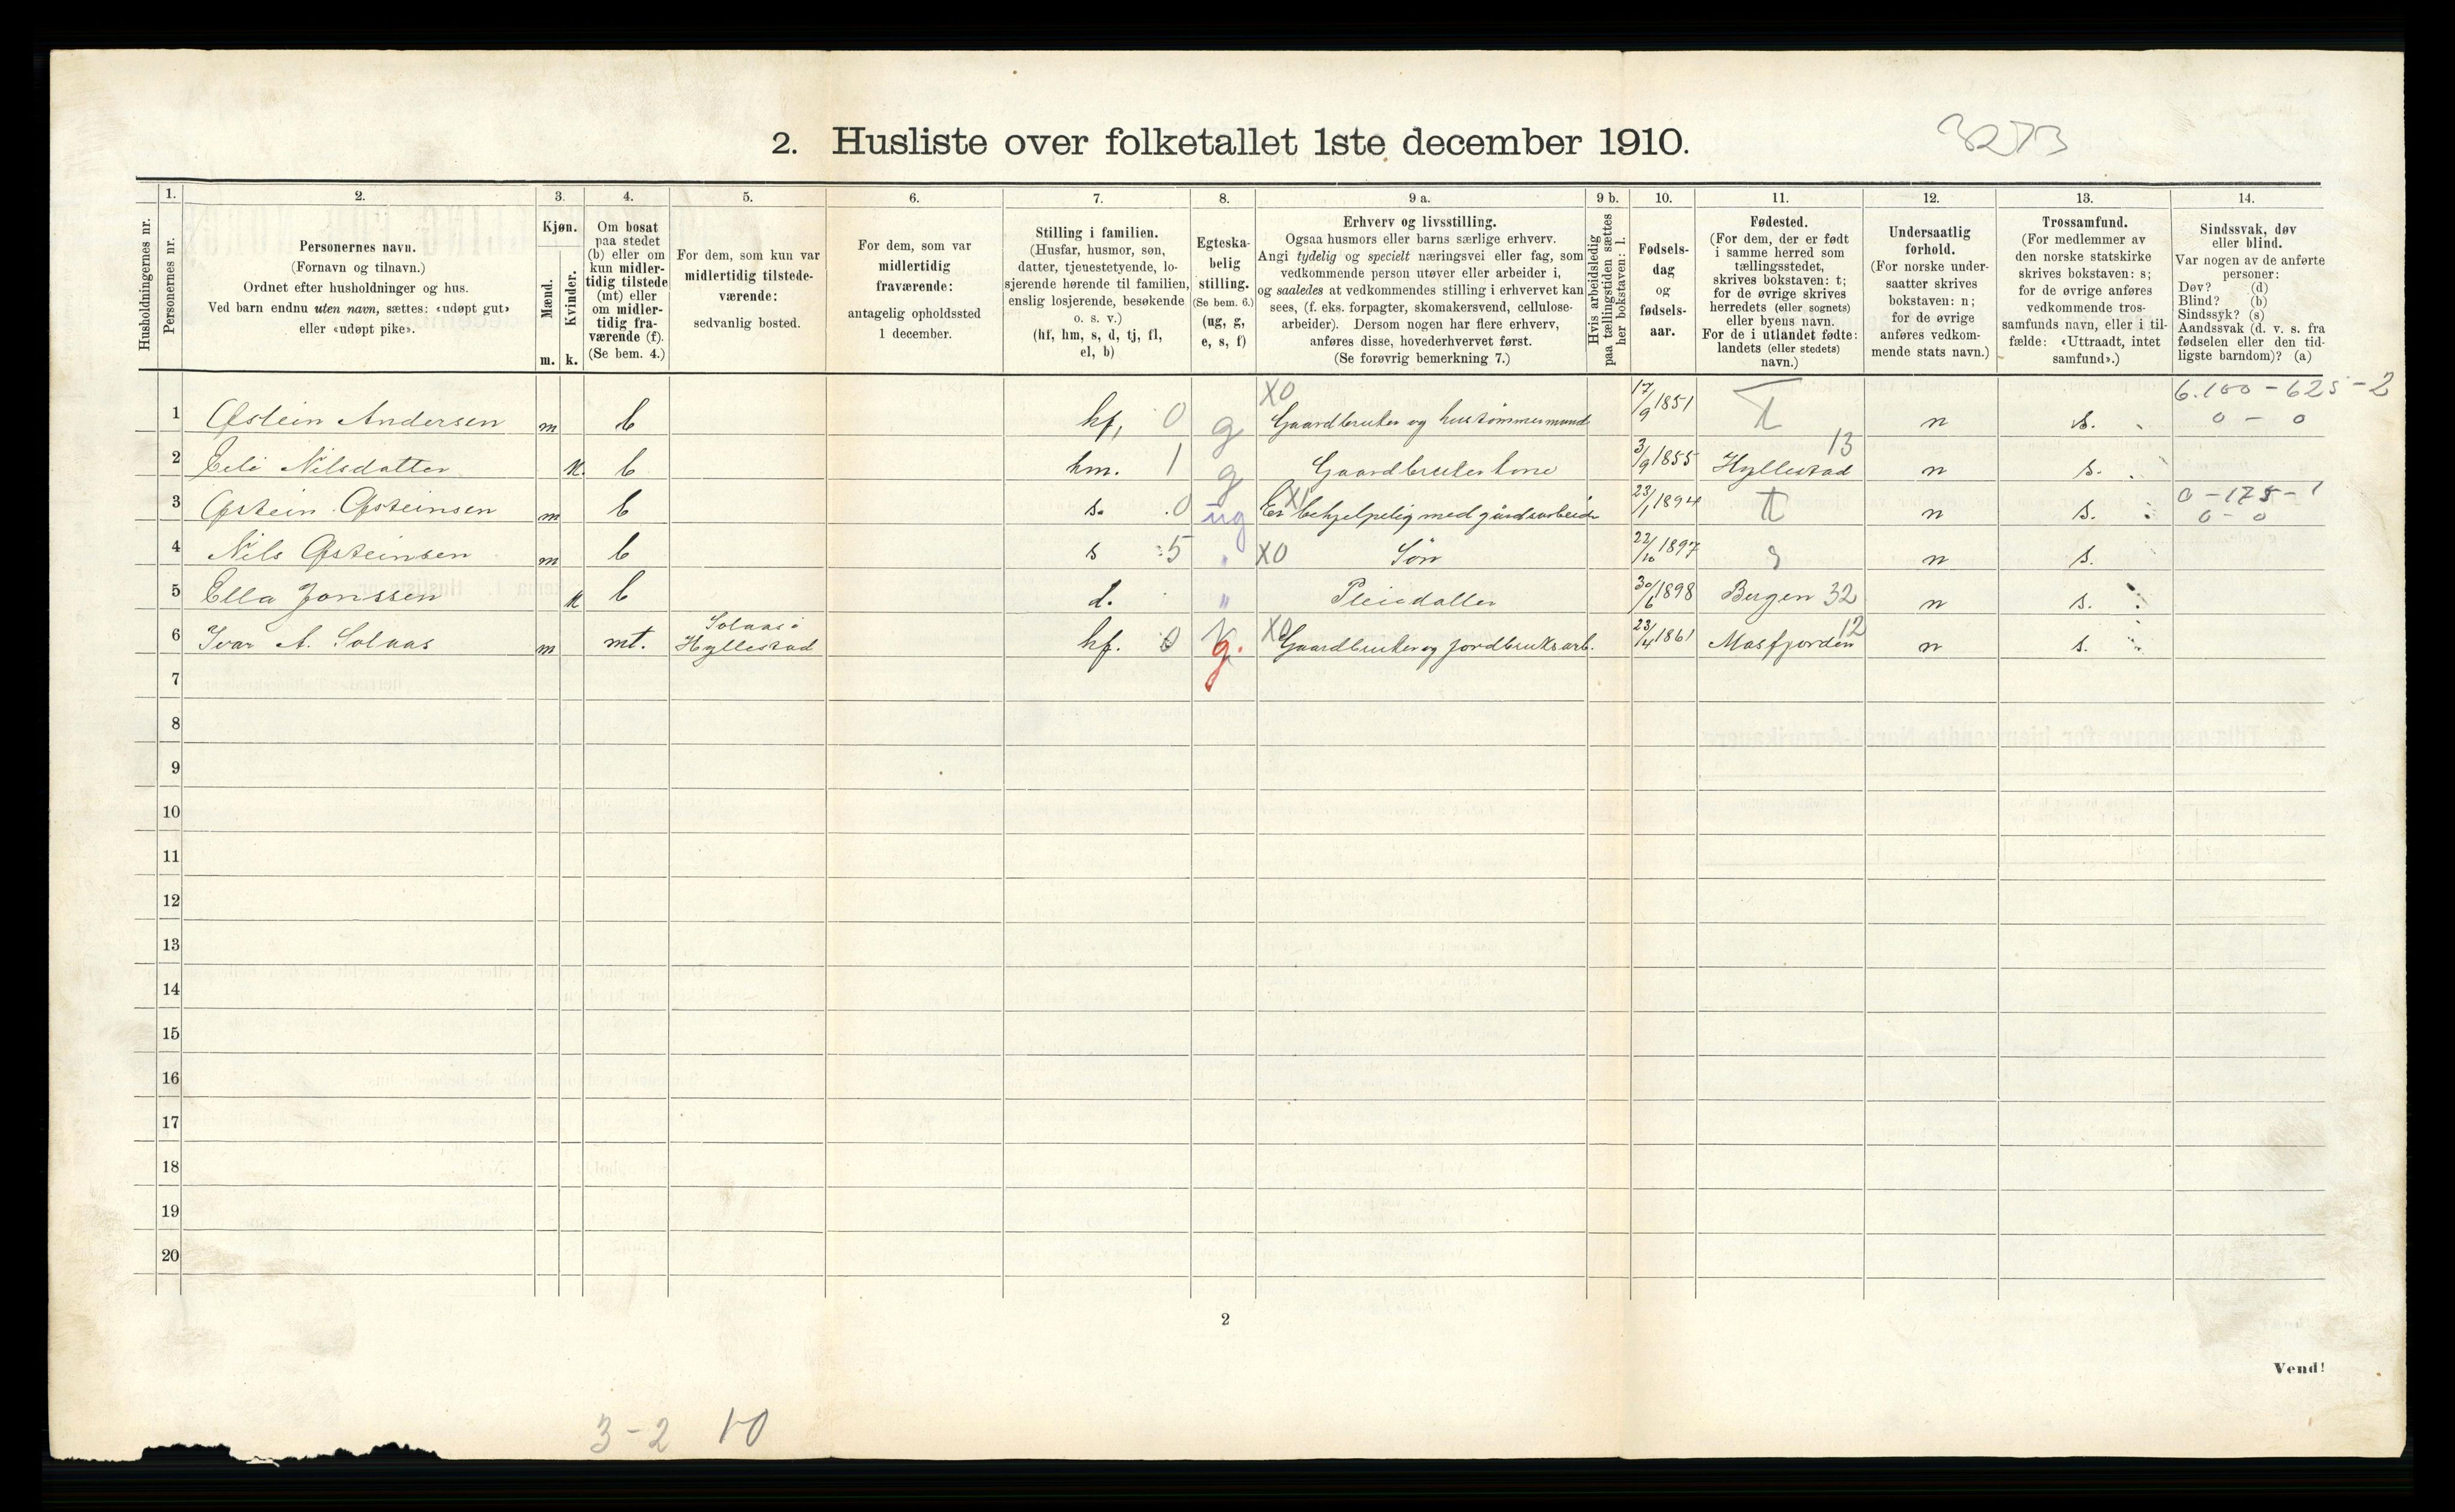 2. Husliste over folketallet 1ste december 1910.
3273
1. 2. 3. 4. 5. 6. 7. 8. 9 a. 9 b. 10. 11. 12. 13. 14.
Husholdningernes nr.
Personernes nr.
Personernes navn.
(Fornavn og tilnavn.)
Ordnet efter husholdninger og hus.
Ved barn endnu uten navn, sættes: «udøpt gut»
eller «udøpt pike».
Kjøn.
Mænd.
Kvinder.
m. k.
Om bosat
paa stedet
(b) eller om
kun midler-
tidig tilstede
(mt) eller
om midler-
tidig fra-
værende (f).
(Se bem. 4.)
For dem, som kun var
midlertidig tilstede-
værende:
sedvanlig bosted.
For dem, som var
midlertidig
fraværende:
antagelig opholdssted
1 december.
Stilling i familien.
(Husfar, husmor, søn,
datter, tjenestetyende, lo-
sjerende hørende til familien,
enslig losjerende, besøkende
o. s. v.)
(hf, hm, s, d, tj, fl,
el, b)
Egteska-
belig
stilling.
(Se bem. 6.)
(ug, g,
e, s, f)
Erhverv og livsstilling.
Ogsaa husmors eller barns særlige erhverv.
Angi tydelig og specielt næringsvei eller fag, som
vedkommende person utøver eller arbeider i,
og saaledes at vedkommendes stilling i erhvervet kan
sees, (f. eks. forpagter, skomakersvend, cellulose-
arbeider). Dersom nogen har flere erhverv,
anføres disse, hovederhvervet først.
(Se forøvrig bemerkning 7.)
Hvis arbeidsledig
paa tællingstiden sættes
her bokstaven: l.
Fødsels-
dag
og
fødsels-
aar.
Fødested.
(For dem, der er født
i samme herred som
tællingsstedet,
skrives bokstaven: t;
for de øvrige skrives
herredets (eller sognets)
eller byens navn.
For de i utlandet fødte:
landets (eller stedets)
navn.)
Undersaatlig
forhold.
(For norske under-
saatter skrives
bokstaven: n;
for de øvrige
anføres vedkom-
mende stats navn.)
Trossamfund.
(For medlemmer av
den norske statskirke
skrives bokstaven: s;
for de øvrige anføres
vedkommende tros-
samfunds navn, eller i til-
fælde: «Uttraadt, intet
samfund».)
Sindssvak, døv
eller blind.
Var nogen av de anførte
personer:
Døv? (d)
Blind? (b)
Sindssyk? (s)
Aandssvak (d. v. s. fra
fødselen eller den tid-
ligste barndom)? (a)
XO 6.100 - 625 - 2
1 Østein Andersen m b hf, 0 g Gaardbruker og hustømmermand 17/9 1851 T n s. 0 - 0
13
2 Eli Nilsdatter k. b hm. 1 g Gaardbrukerkone 3/9 1855 Hyllestad n s.
X 0 - 175 - 1
3 Østein Østeinsen m b s. 0 ug Er behjelpelig med gårdsarbeide 23/1 1894 t n s. 0 - 0
4 Nils Østeinsen m b s 5 " XO Søn 22/10 1897 n s.
5 Ella Jonssen k b d. " Pleiedatter 30/6 1898 Bergen 32 n s.
Solaas i XO 12
6 Ivar A. Solaas m mt. Hyllestad hf. 0 g. Gaardbruker og jordbruksarb. 23/4 1861 Masfjorden n s.
7
8
9
10
11
12
13
14
15
16
17
18
19
20
2
Vend!
3-2 10